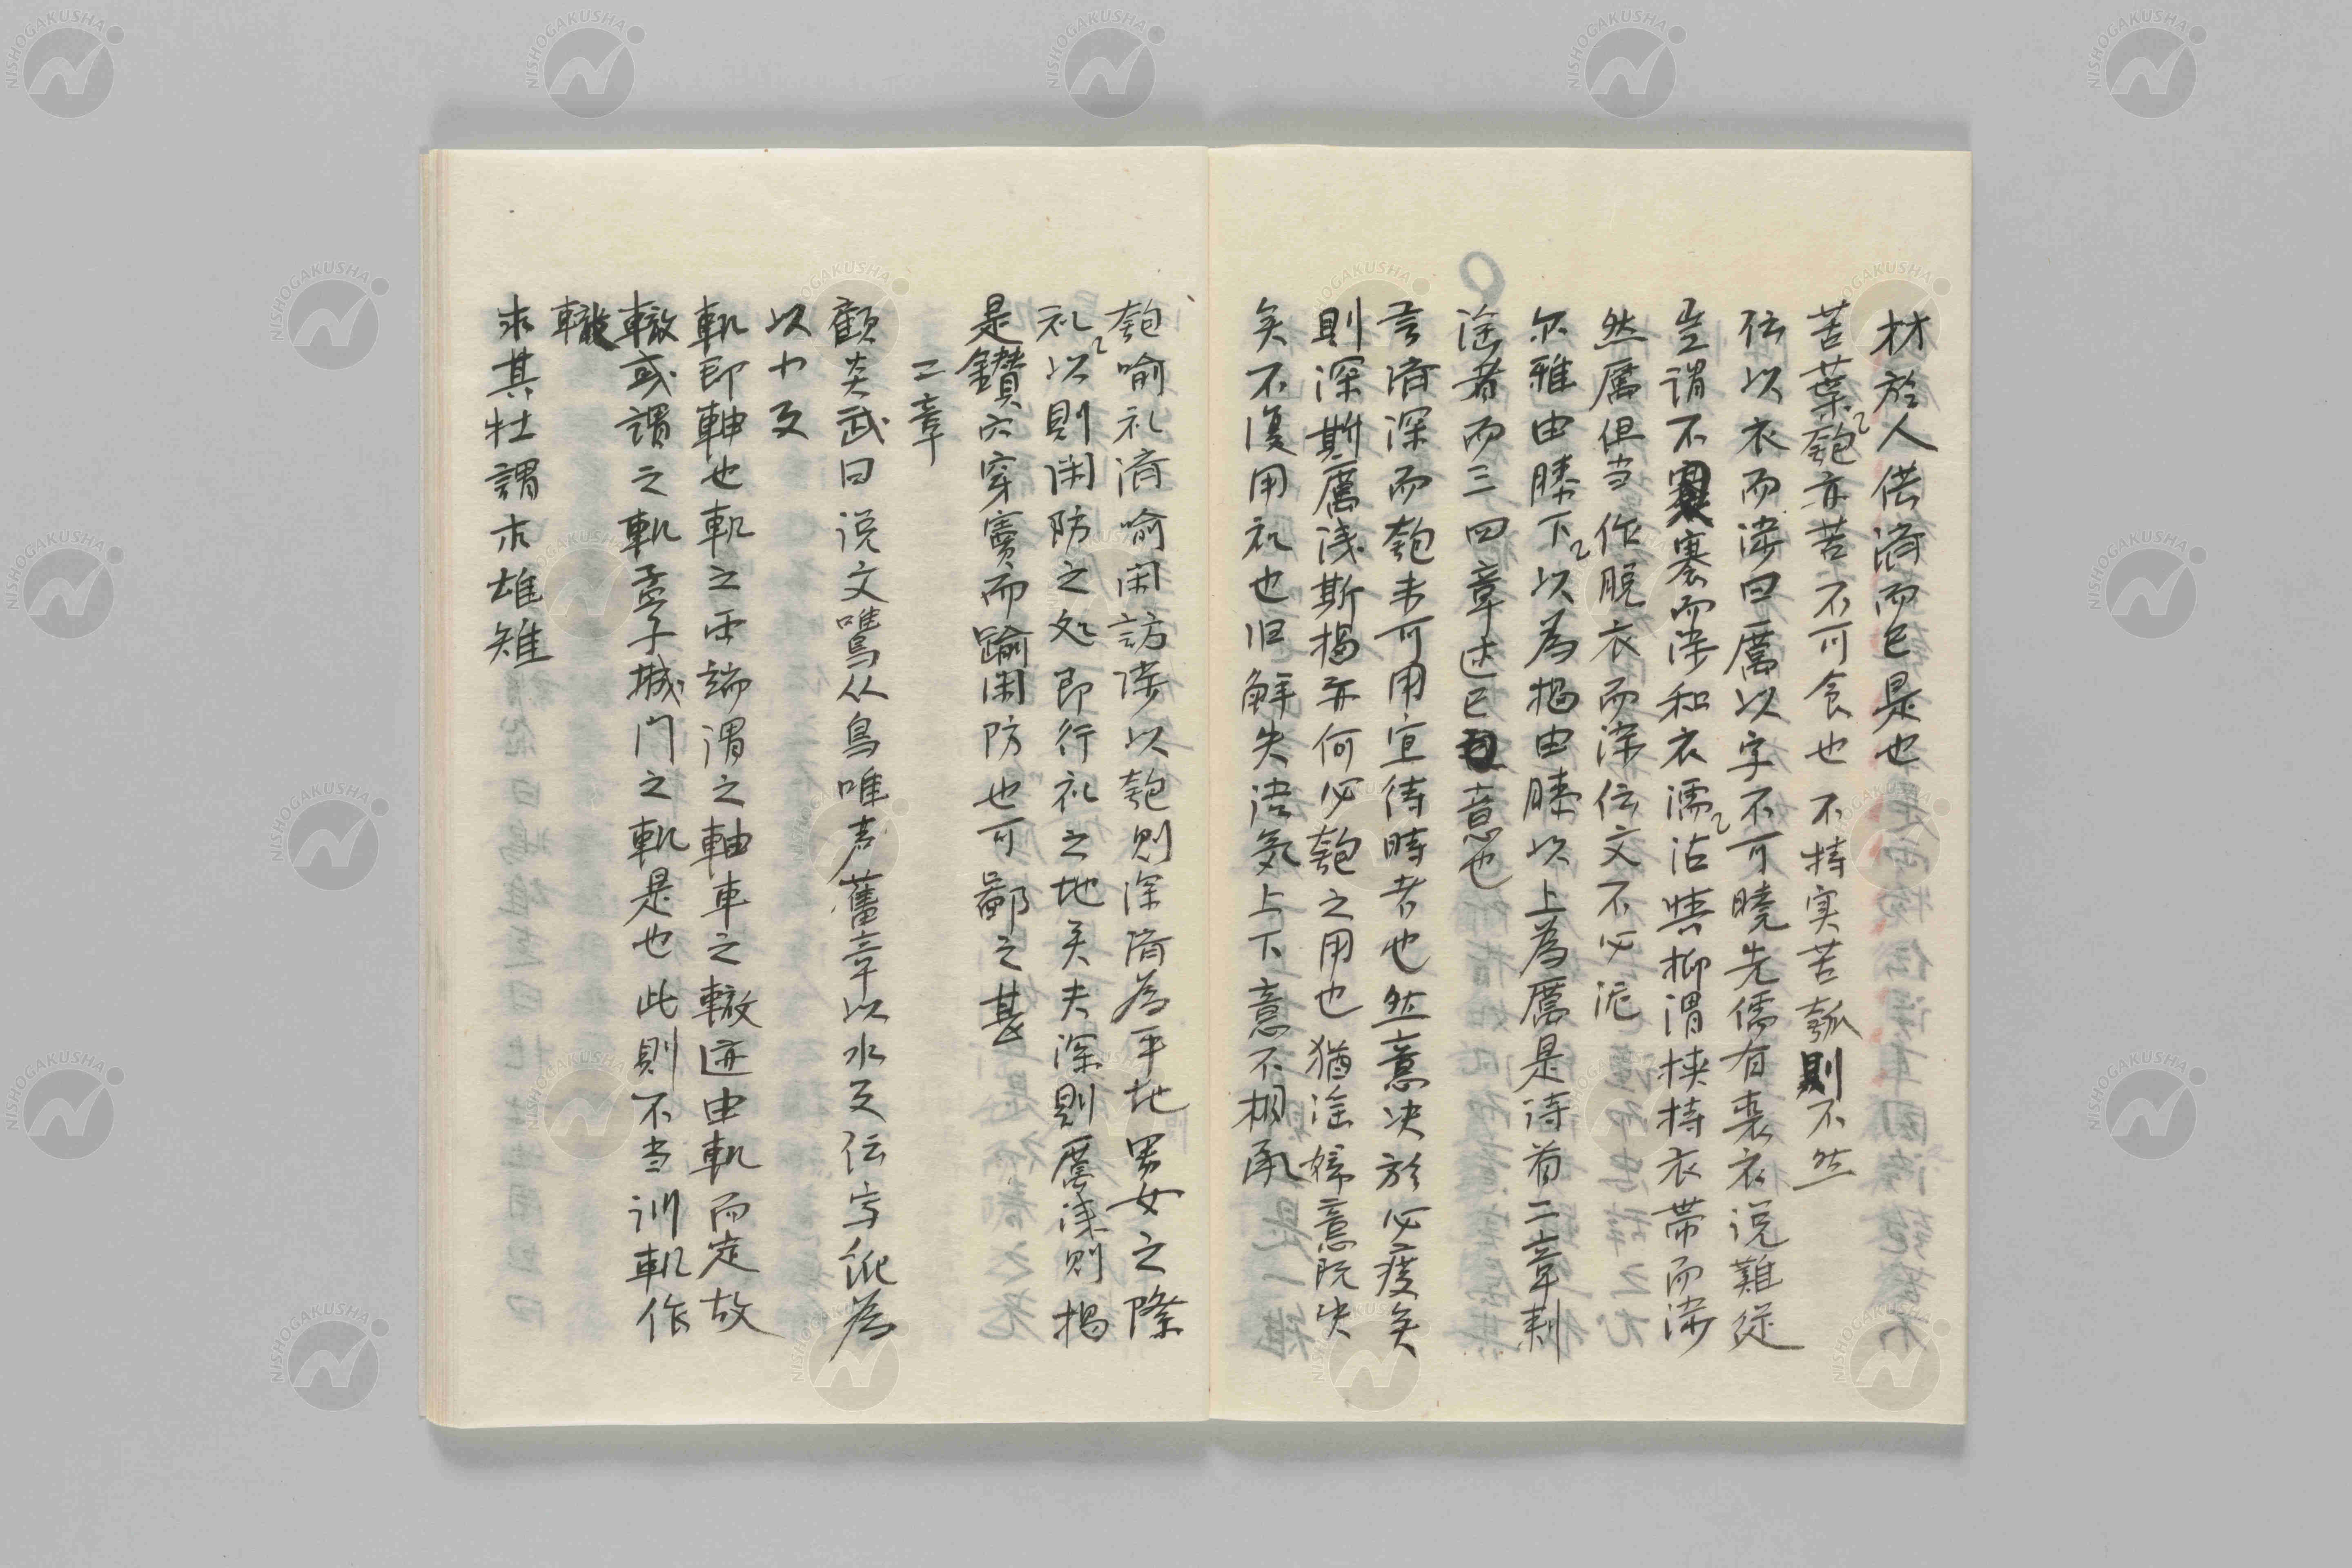 材於人供済而已是也
苦葉匏亦苦不可食也不特実苦瓠則不然
伝以衣而渉曰厲以字不可曉先儒有裹衣説難従
豈謂不褰而渉和衣濡沾與抑謂挟持衣帯而渉
然厲但当作脱衣而深伝文不必泥
尓雅由膝下以為揭由膝以上為厲是詩首二章刺
淫者而三四章述已意也
言済深而匏未可用宜待時者也然意决於必度矣
則深斯厲浅斯揭亦何必匏之用也猶淫婦意既决
矣不復用礼也旧解失語気上下意不相承
匏喻礼済喻闲訪渉以匏則深済為平地男女之際
礼以則闲防之処即行礼之地矣夫深則厲浅則揭
是鑚穴穿窦而踰闲防也可鄙之甚
二章
顧炎武曰说文鷕从鳥唯声舊章以水反伝写訛為
以小反
軌即軸也軌之両端謂之軸車之轍迹由軌而定故
轍或謂之軌孟子城門之軌是也此則不当訓軌作
轍
求其牡謂求雄雉
NISHOGAKUSHA